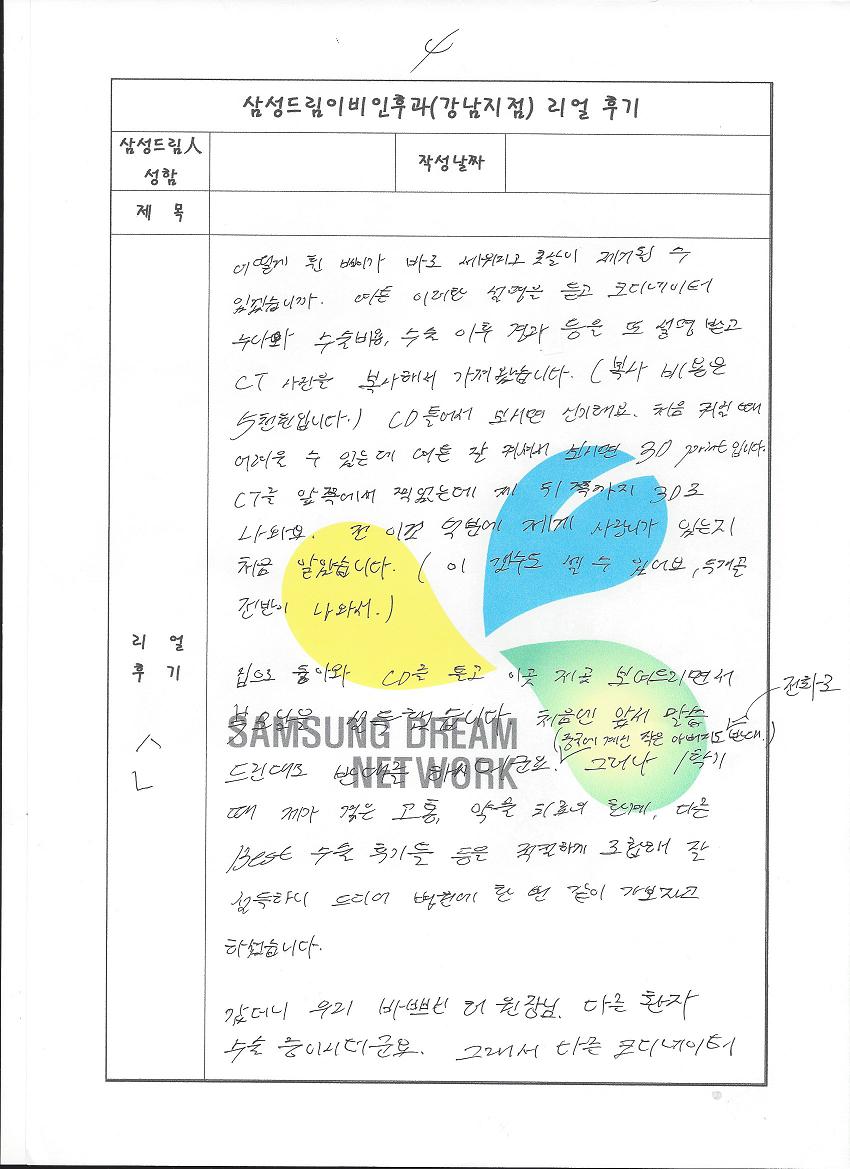 4
삼성드림이비인후과(강남지점) 리얼 후기
삼성드림人
성함
작성날짜
제 목
어떻게 휜 뼈가 바로 세워지고 콧살이 제거될 수
있겠습니까. 여튼 이러한 설명을 듣고 코디네이터
누나와 수술비용, 수술 이후 경과 등을 또 설명 받고
CT 사진을 복사해서 가져왔습니다. (복사 비용은
5천원입니다.) CD 틀어서 보시면 신기해요. 처음 켜실 때
어려울 수 있는데 여튼 잘 켜셔서 보시면 3D 입니다.
CT를 앞쪽에서 찍었는데 제 뒤쪽까지 3D로
나와요. 전 이것 덕분에 제게 사랑니가 있는지
처음 알았습니다. (이 갯수도 셀 수 있어요, 두개골
전반이 나와서.)
리 얼
후 기
집으로 돌아와 CD를 틀고 이곳 저곳 보여드리면서
부모님을 설득했습니다. 처음엔 앞서 말씀
전화로
(중국에 계신 작은 아버지도 반대.)
SAMSUNG DREAM
NETWORK
드린대로 반대를 하시더군요. 그러나 1학기
때 제가 겪은 고통, 약물 치료의 한계, 다른
Best 수술 후기들 등을 적절하게 조합해 잘
설득하니 드디어 병원에 한 번 같이 가보자고
하셨습니다.
갔더니 우리 바쁘신 원장님. 다른 환자
수술 중이시더군요. 그래서 다른 코디네이터